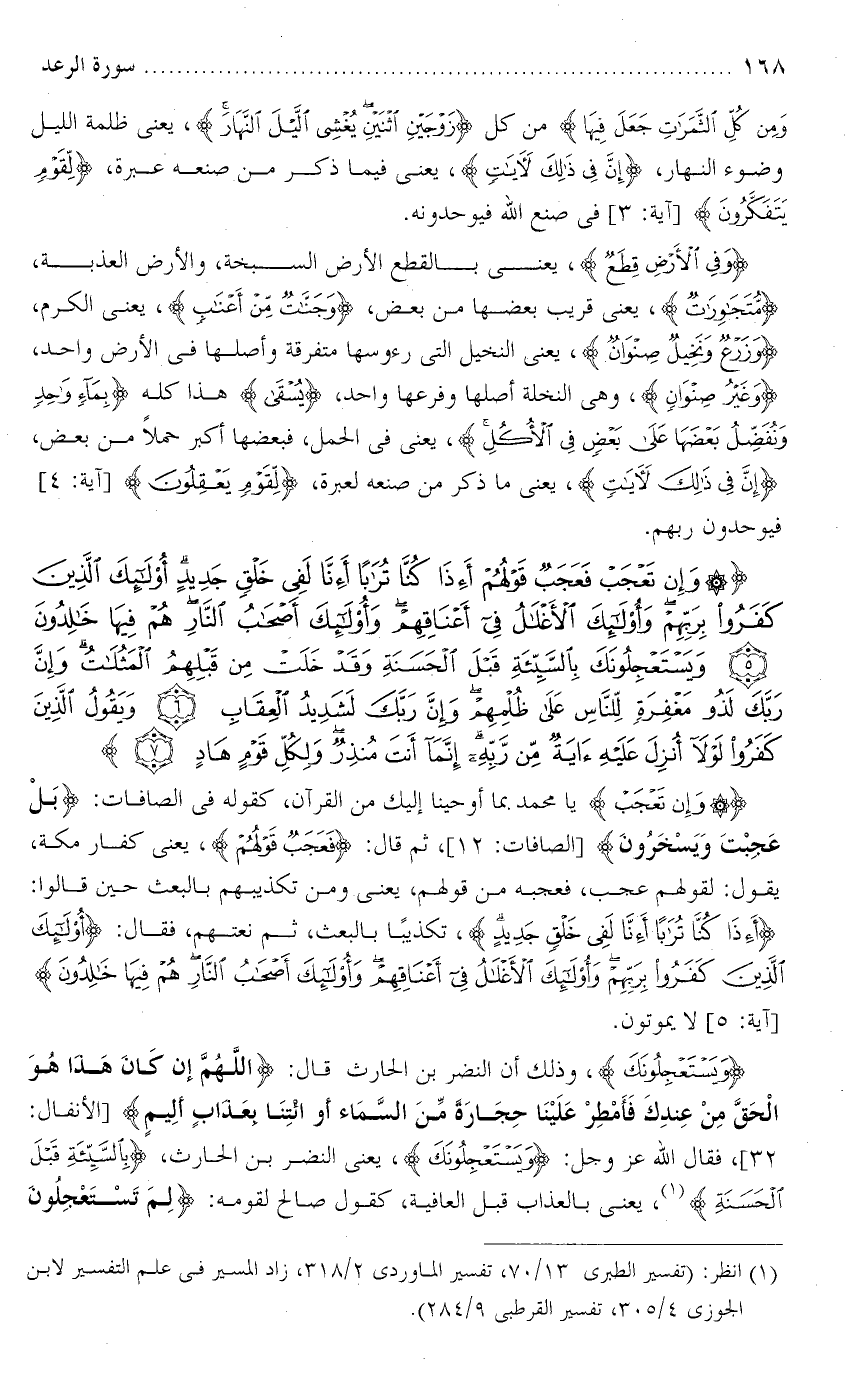 ١٦٨ ........................................................................ سورة الرعد
وَمِن كُلِّ ٱلثَّمَرَٰتِ جَعَلَ فِيهَا﴾ من كل ﴿زَوْجَيْنِ ٱثْنَيْنِۖ يُغْشِى ٱلَّيْلَ ٱلنَّهَارَۚ﴾، يعنى ظلمة الليل
وضوء النهار، ﴿إِنَّ فِى ذَٰلِكَ لَآيَٰتٍ﴾، يعنى فيما ذكر من صنعه عبرة، ﴿لِّقَوْمٍ
يَتَفَكَّرُونَ﴾ [آية: ٣] فى صنع الله فيوحدونه.
﴿وَفِى ٱلْأَرْضِ قِطَعٌ﴾، يعنى بالقطع الأرض السبخة، والأرض العذبة،
﴿مُّتَجَٰوِرَٰتٌ﴾، يعنى قريب بعضها من بعض، ﴿وَجَنَّٰتٌ مِّنْ أَعْنَٰبٍ﴾، يعنى الكرم،
﴿وَزَرْعٌ وَنَخِيلٌ صِنْوَانٌ﴾، يعنى النخيل التى رءوسها متفرقة وأصلها فى الأرض واحد،
﴿وَغَيْرُ صِنْوَانٍ﴾، وهى النخلة أصلها وفرعها واحد، ﴿يُسْقَىٰ﴾ هذا كله ﴿بِمَآءٍ وَٰحِدٍ
وَنُفَضِّلُ بَعْضَهَا عَلَىٰ بَعْضٍ فِى ٱلْأُكُلِۚ﴾، يعنى فى الحمل، فبعضها أكبر حملاً من بعض،
﴿إِنَّ فِى ذَٰلِكَ لَآيَٰتٍ﴾، يعنى ما ذكر من صنعه لعبرة، ﴿لِّقَوْمٍ يَعْقِلُونَ﴾ [آية: ٤]
فيوحدون ربهم.
﴿۞ وَإِن تَعْجَبْ فَعَجَبٌ قَوْلُهُمْ أَءِذَا كُنَّا تُرَٰبًا أَءِنَّا لَفِى خَلْقٍ جَدِيدٍۗ أُوْلَٰٓئِكَ ٱلَّذِينَ
كَفَرُوا۟ بِرَبِّهِمْۖ وَأُوْلَٰٓئِكَ ٱلْأَغْلَٰلُ فِىٓ أَعْنَاقِهِمْۖ وَأُوْلَٰٓئِكَ أَصْحَٰبُ ٱلنَّارِۖ هُمْ فِيهَا خَٰلِدُونَ
٥ وَيَسْتَعْجِلُونَكَ بِٱلسَّيِّئَةِ قَبْلَ ٱلْحَسَنَةِ وَقَدْ خَلَتْ مِن قَبْلِهِمُ ٱلْمَثُلَٰتُۗ وَإِنَّ
رَبَّكَ لَذُو مَغْفِرَةٍ لِّلنَّاسِ عَلَىٰ ظُلْمِهِمْۖ وَإِنَّ رَبَّكَ لَشَدِيدُ ٱلْعِقَابِ ٦ وَيَقُولُ ٱلَّذِينَ
كَفَرُوا۟ لَوْلَآ أُنزِلَ عَلَيْهِ ءَايَةٌ مِّن رَّبِّهِۦٓۗ إِنَّمَآ أَنتَ مُنذِرٌۖ وَلِكُلِّ قَوْمٍ هَادٍ ٧﴾
﴿۞ وَإِن تَعْجَبْ﴾ يا محمد بما أوحينا إليك من القرآن، كقوله فى الصافات: ﴿بَلْ
عَجِبْتَ وَيَسْخَرُونَ﴾ [الصافات: ١٢]، ثم قال: ﴿فَعَجَبٌ قَوْلُهُمْ﴾، يعنى كفار مكة،
يقول: لقولهم عجب، فعجبه من قولهم، يعنى ومن تكذيبهم بالبعث حين قالوا:
﴿أَءِذَا كُنَّا تُرَٰبًا أَءِنَّا لَفِى خَلْقٍ جَدِيدٍۗ﴾، تكذيبًا بالبعث، ثم نعتهم، فقال: ﴿أُوْلَٰٓئِكَ
ٱلَّذِينَ كَفَرُوا۟ بِرَبِّهِمْۖ وَأُوْلَٰٓئِكَ ٱلْأَغْلَٰلُ فِىٓ أَعْنَاقِهِمْۖ وَأُوْلَٰٓئِكَ أَصْحَٰبُ ٱلنَّارِۖ هُمْ فِيهَا خَٰلِدُونَ﴾
[آية: ٥] لا يموتون.
﴿وَيَسْتَعْجِلُونَكَ﴾، وذلك أن النضر بن الحارث قال: ﴿اللَّهُمَّ إِن كَانَ هَـذَا هُوَ
الْحَقَّ مِنْ عِندِكَ فَأَمْطِرْ عَلَيْنَا حِجَارَةً مِّنَ السَّمَاء أَوِ ائْتِنَا بِعَذَابٍ أَلِيمٍ﴾ [الأنفال:
٣٢]، فقال الله عز وجل: ﴿وَيَسْتَعْجِلُونَكَ﴾، يعنى النضر بن الحارث، ﴿بِٱلسَّيِّئَةِ قَبْلَ
ٱلْحَسَنَةِ﴾(١)، يعنى بالعذاب قبل العافية، كقول صالح لقومه: ﴿لِمَ تَسْتَعْجِلُونَ
(١) انظر: (تفسير الطبرى ١٣/٧٠، تفسير الماوردى ٢/٣١٨، زاد المسير فى علم التفسير لابن
الجوزى ٤/٣٠٥، تفسير القرطبى ٩/٢٨٤).